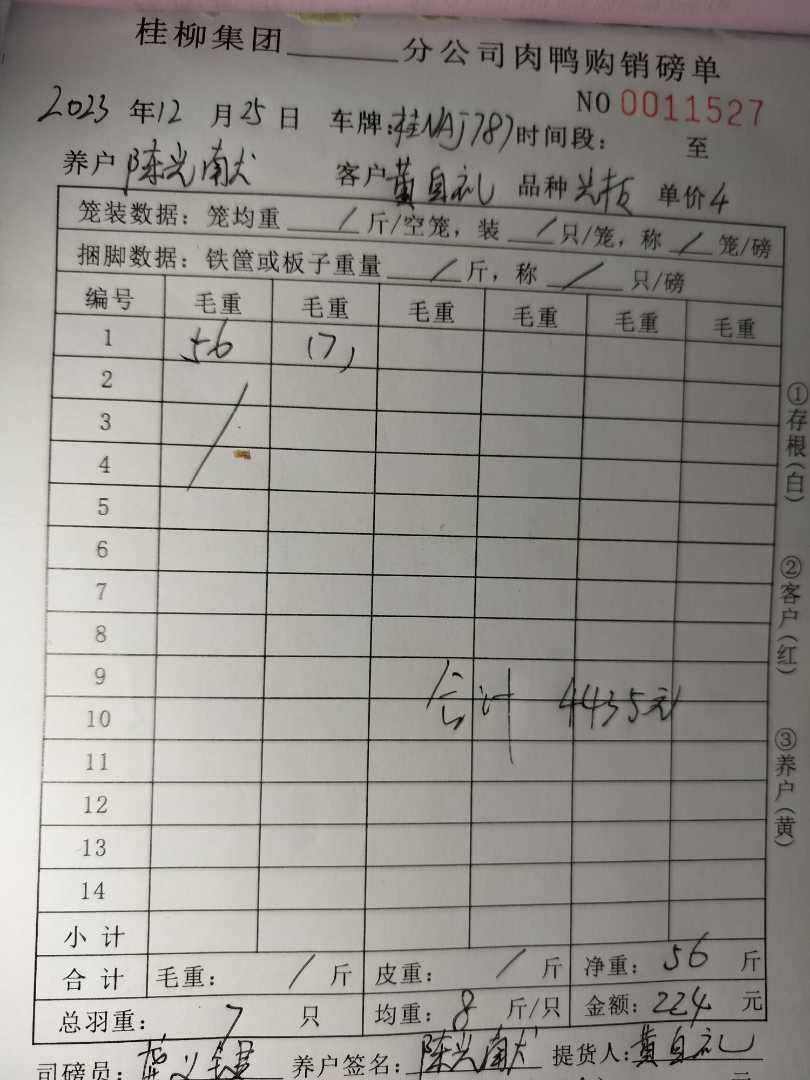 桂柳集团______分公司肉鸭购销磅单
NO 0011527
2023 年 12 月 25 日 车牌:桂NAJ787 时间段: 至
养户 陈光南犬 客户 黄自礼 品种 单价 4
笼装数据:笼均重 / 斤/空笼,装 / 只/笼,称 / 笼/磅
捆脚数据:铁筐或板子重量 / 斤,称 / 只/磅
编号 毛重 毛重 毛重 毛重 毛重 毛重
1 56 (7)
2
3
4
5
6
7
8
9
10
合计 4435元
11
12
13
14
小计
合计 毛重: / 斤 皮重: / 斤 净重: 56 斤
总羽重: 7 只 均重: 8 斤/只 金额: 224 元
司磅员: 养户签名: 陈光南犬 提货人: 黄自礼
元
①存根(白)
②客户(红)
③养户(黄)